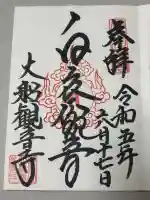 奉拝
令和五年
六月十七日
白衣観音
大船観音寺